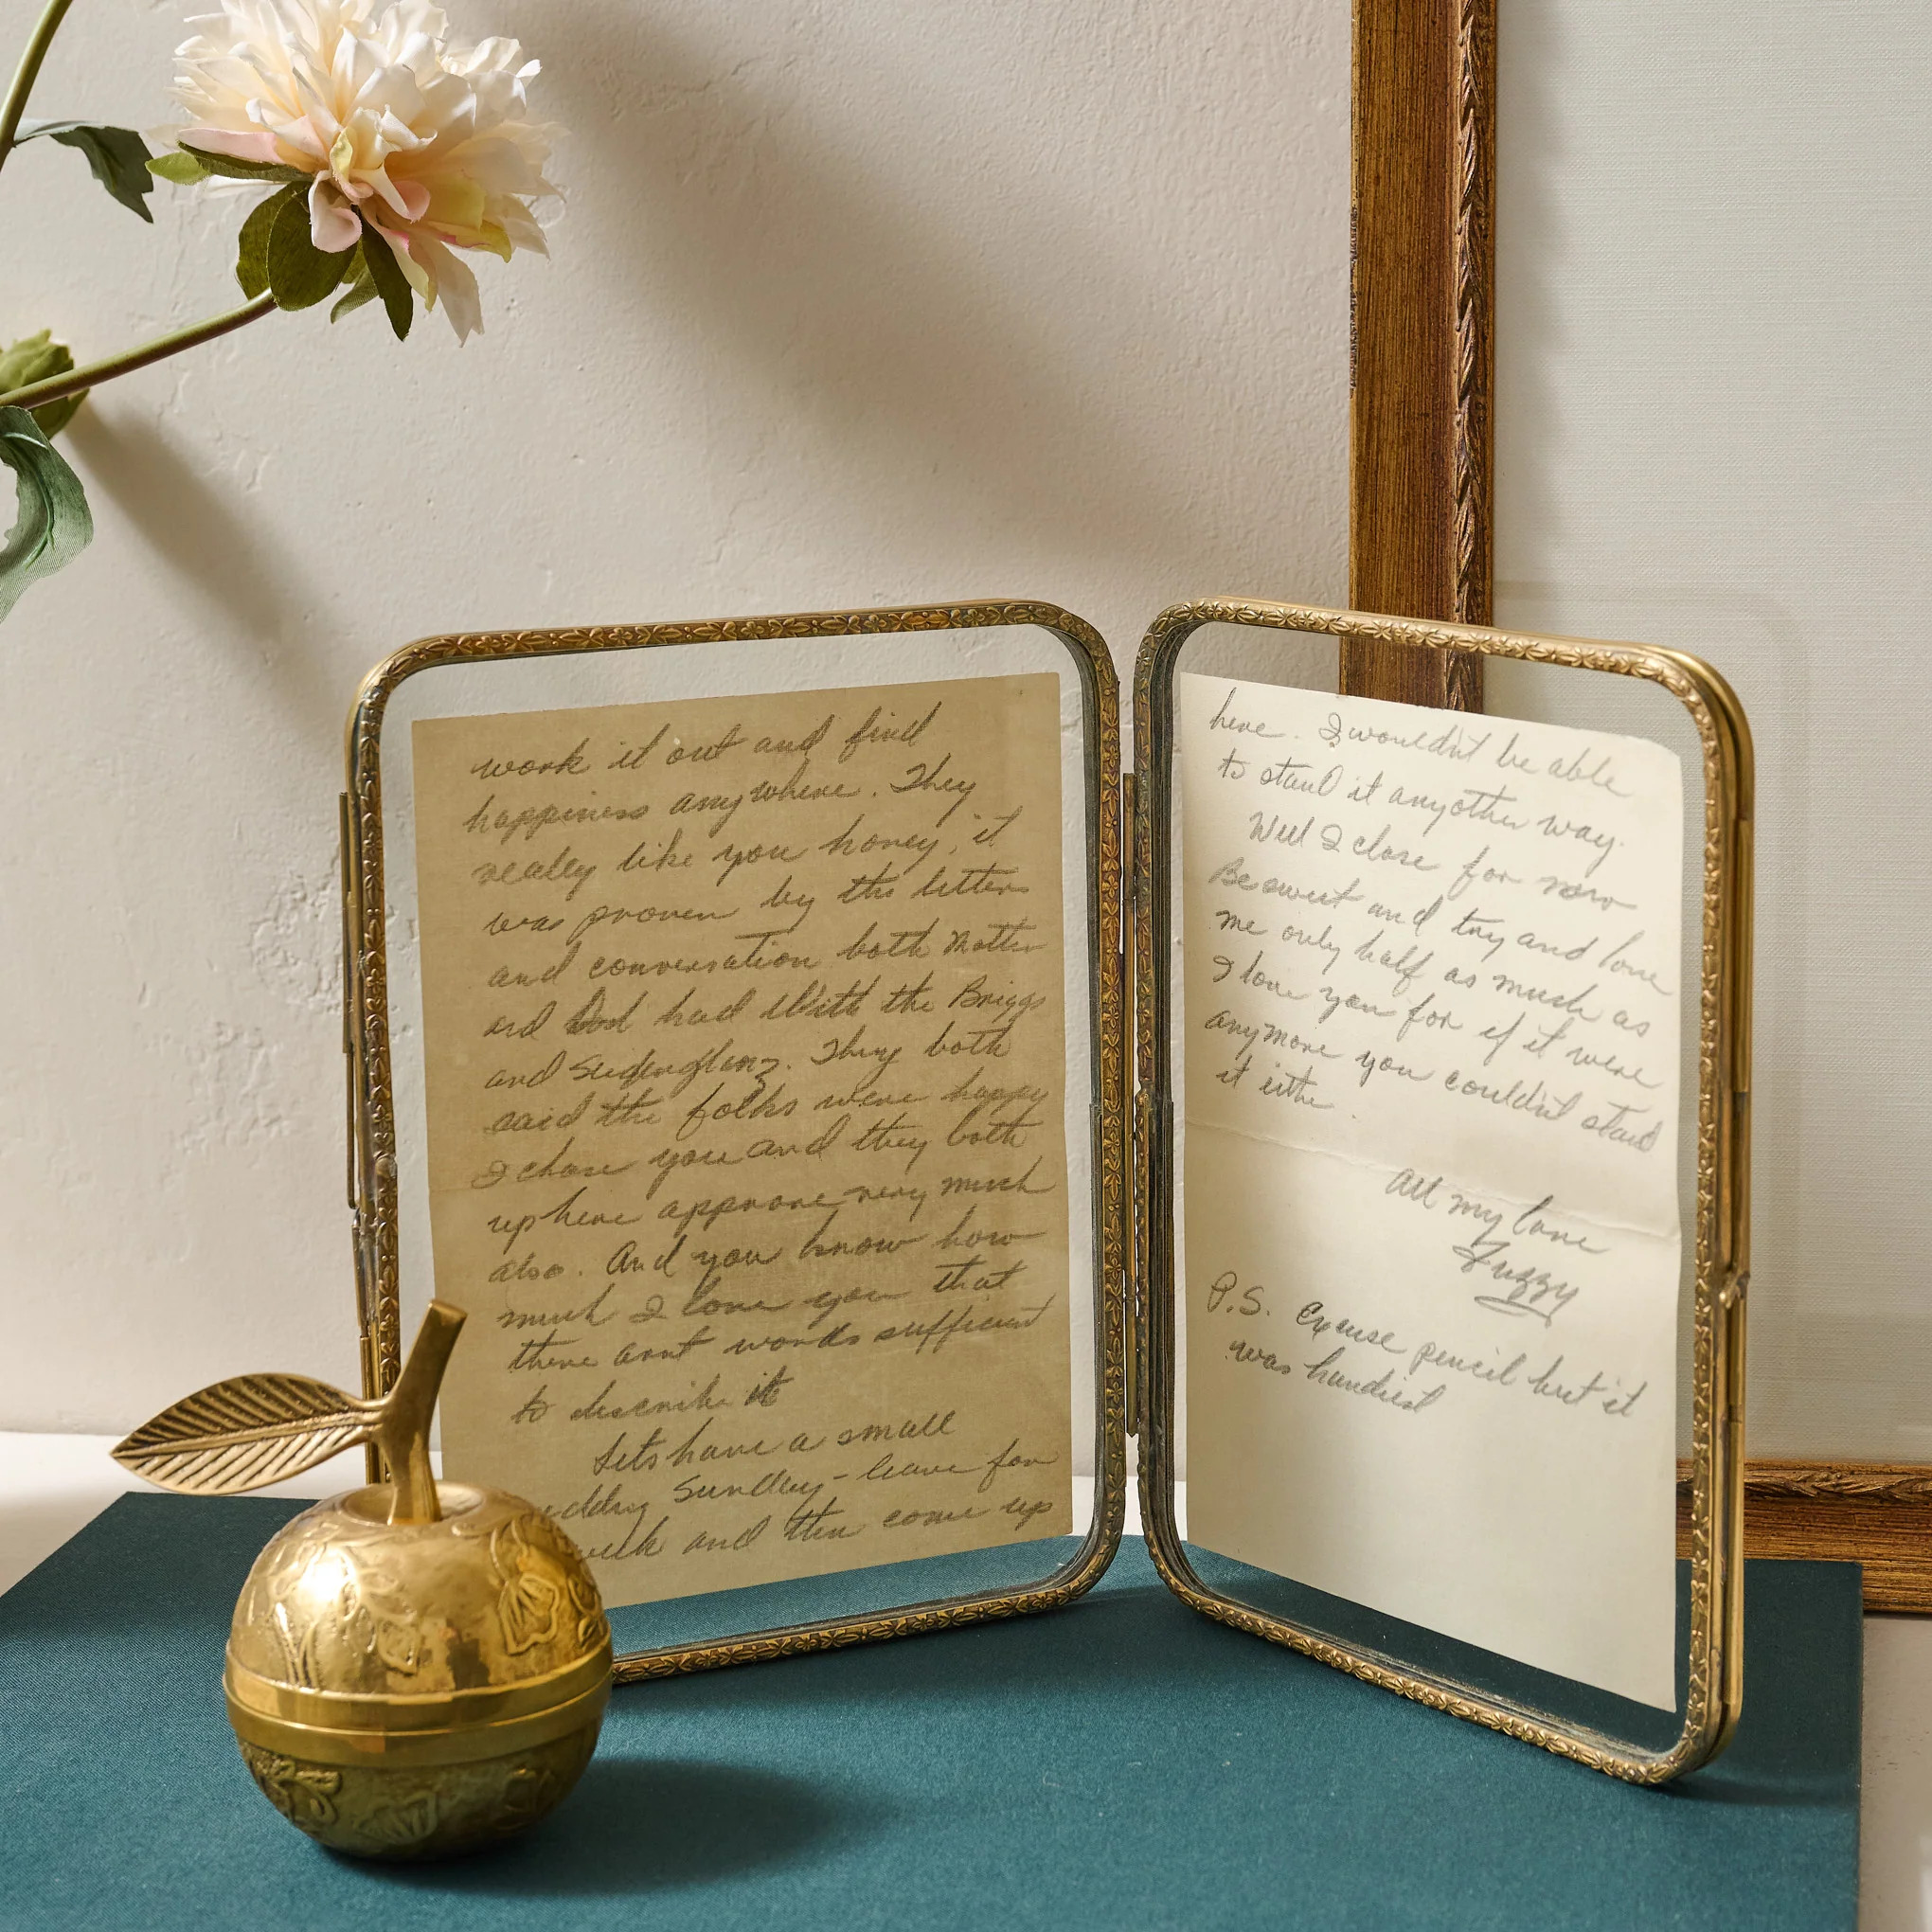 work it out and find
happiness anywhere. They
really like you honey, it
was proven by the letters
and conversation both Mother
and Dad had With the Briggs
and They both
said the folks were happy
I chose you and they both
up here approve very much
also. And you know how
much I love you that
there arnt words sufficient
to describe it
Lets have a small
Sunday - leave for
week and then come up
here. I wouldnt be able
to stand it anyother way.
Well I close for now
Be sweet and try and love
me only half as much as
I love you for if it were
anymore you couldnt stand
it either.
All my love
Fuzzy
P.S. Excuse pencil but it
was handiest